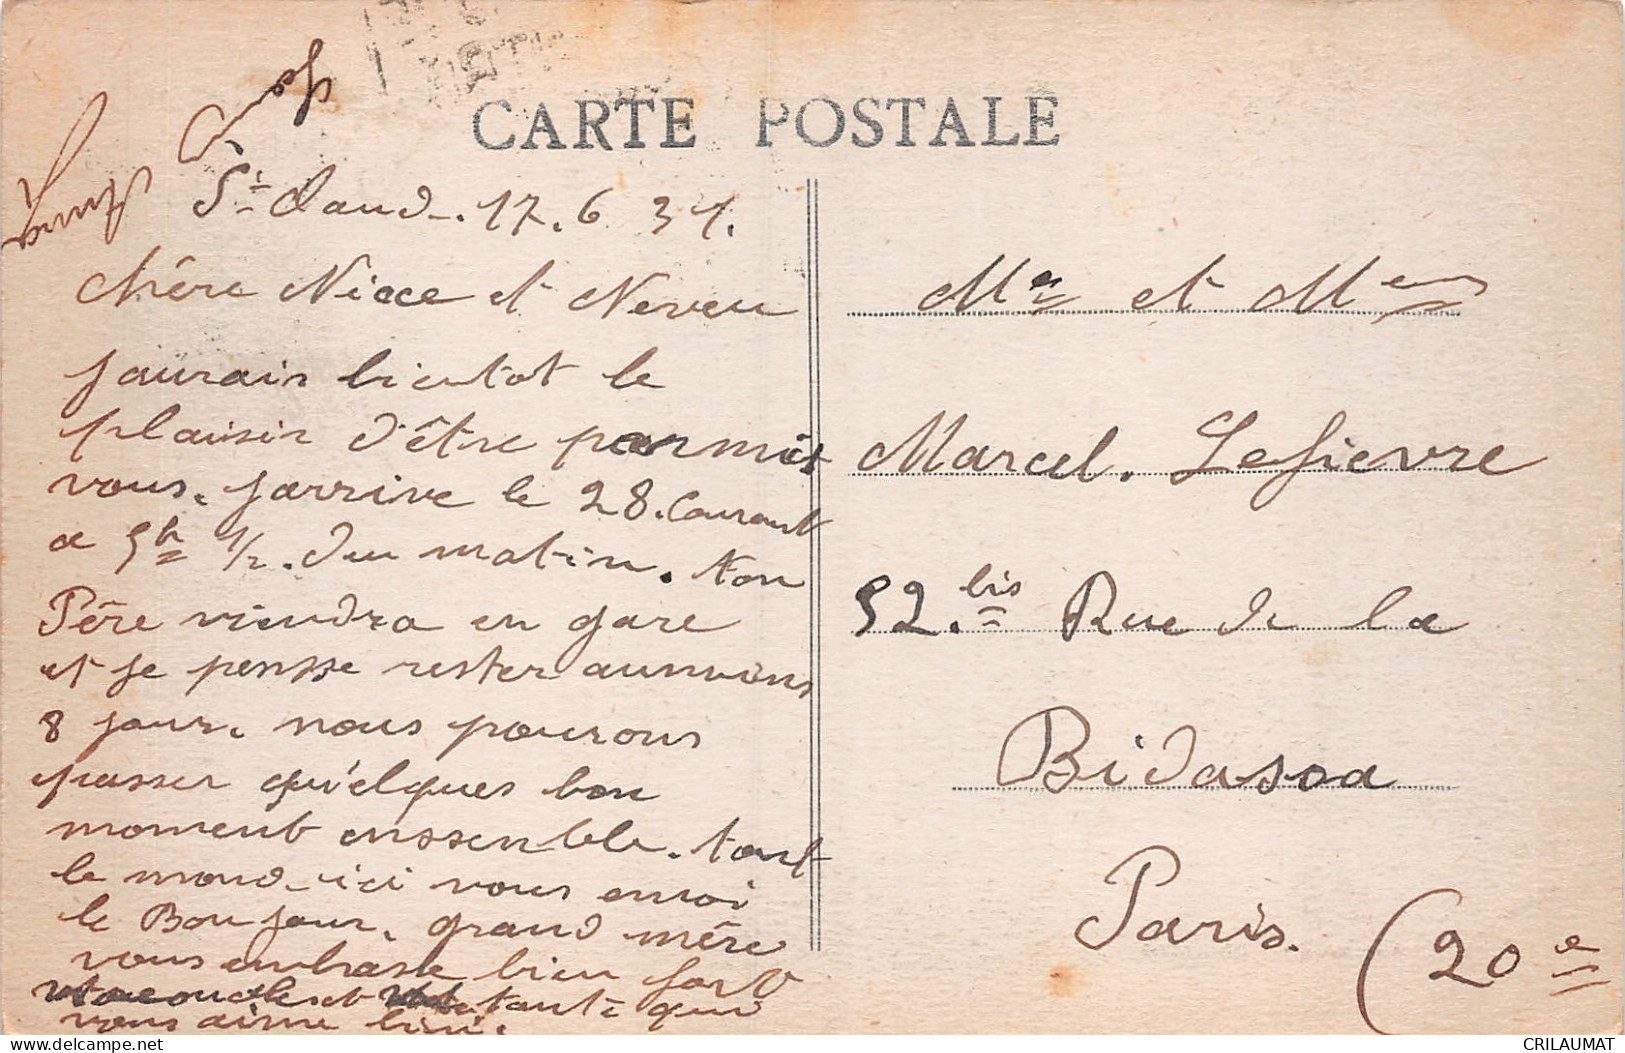 CARTE POSTALE
St Claud. 17. 6 31.
Chére Niece et Neveu
jaurais bientot le
plaisir d'être parmis
vous. jarrive le 28. Courant
a 5h 1/2. du matin. ton
Pére viendra en gare
et je pensse rester aumoins
8 jour. nous pourons
passer quélques bon
moment enssemble. tout
le mond ici vous envoi
le Bonjour. grand mére
vous embrasse bien fort
oncle et tante qui
vous aime bien.
Mr et Mme
Marcel. Lefievre
52. bis Rue de la
Bidassoa
Paris.
(20e
delcampe.net
CRILAUMAT